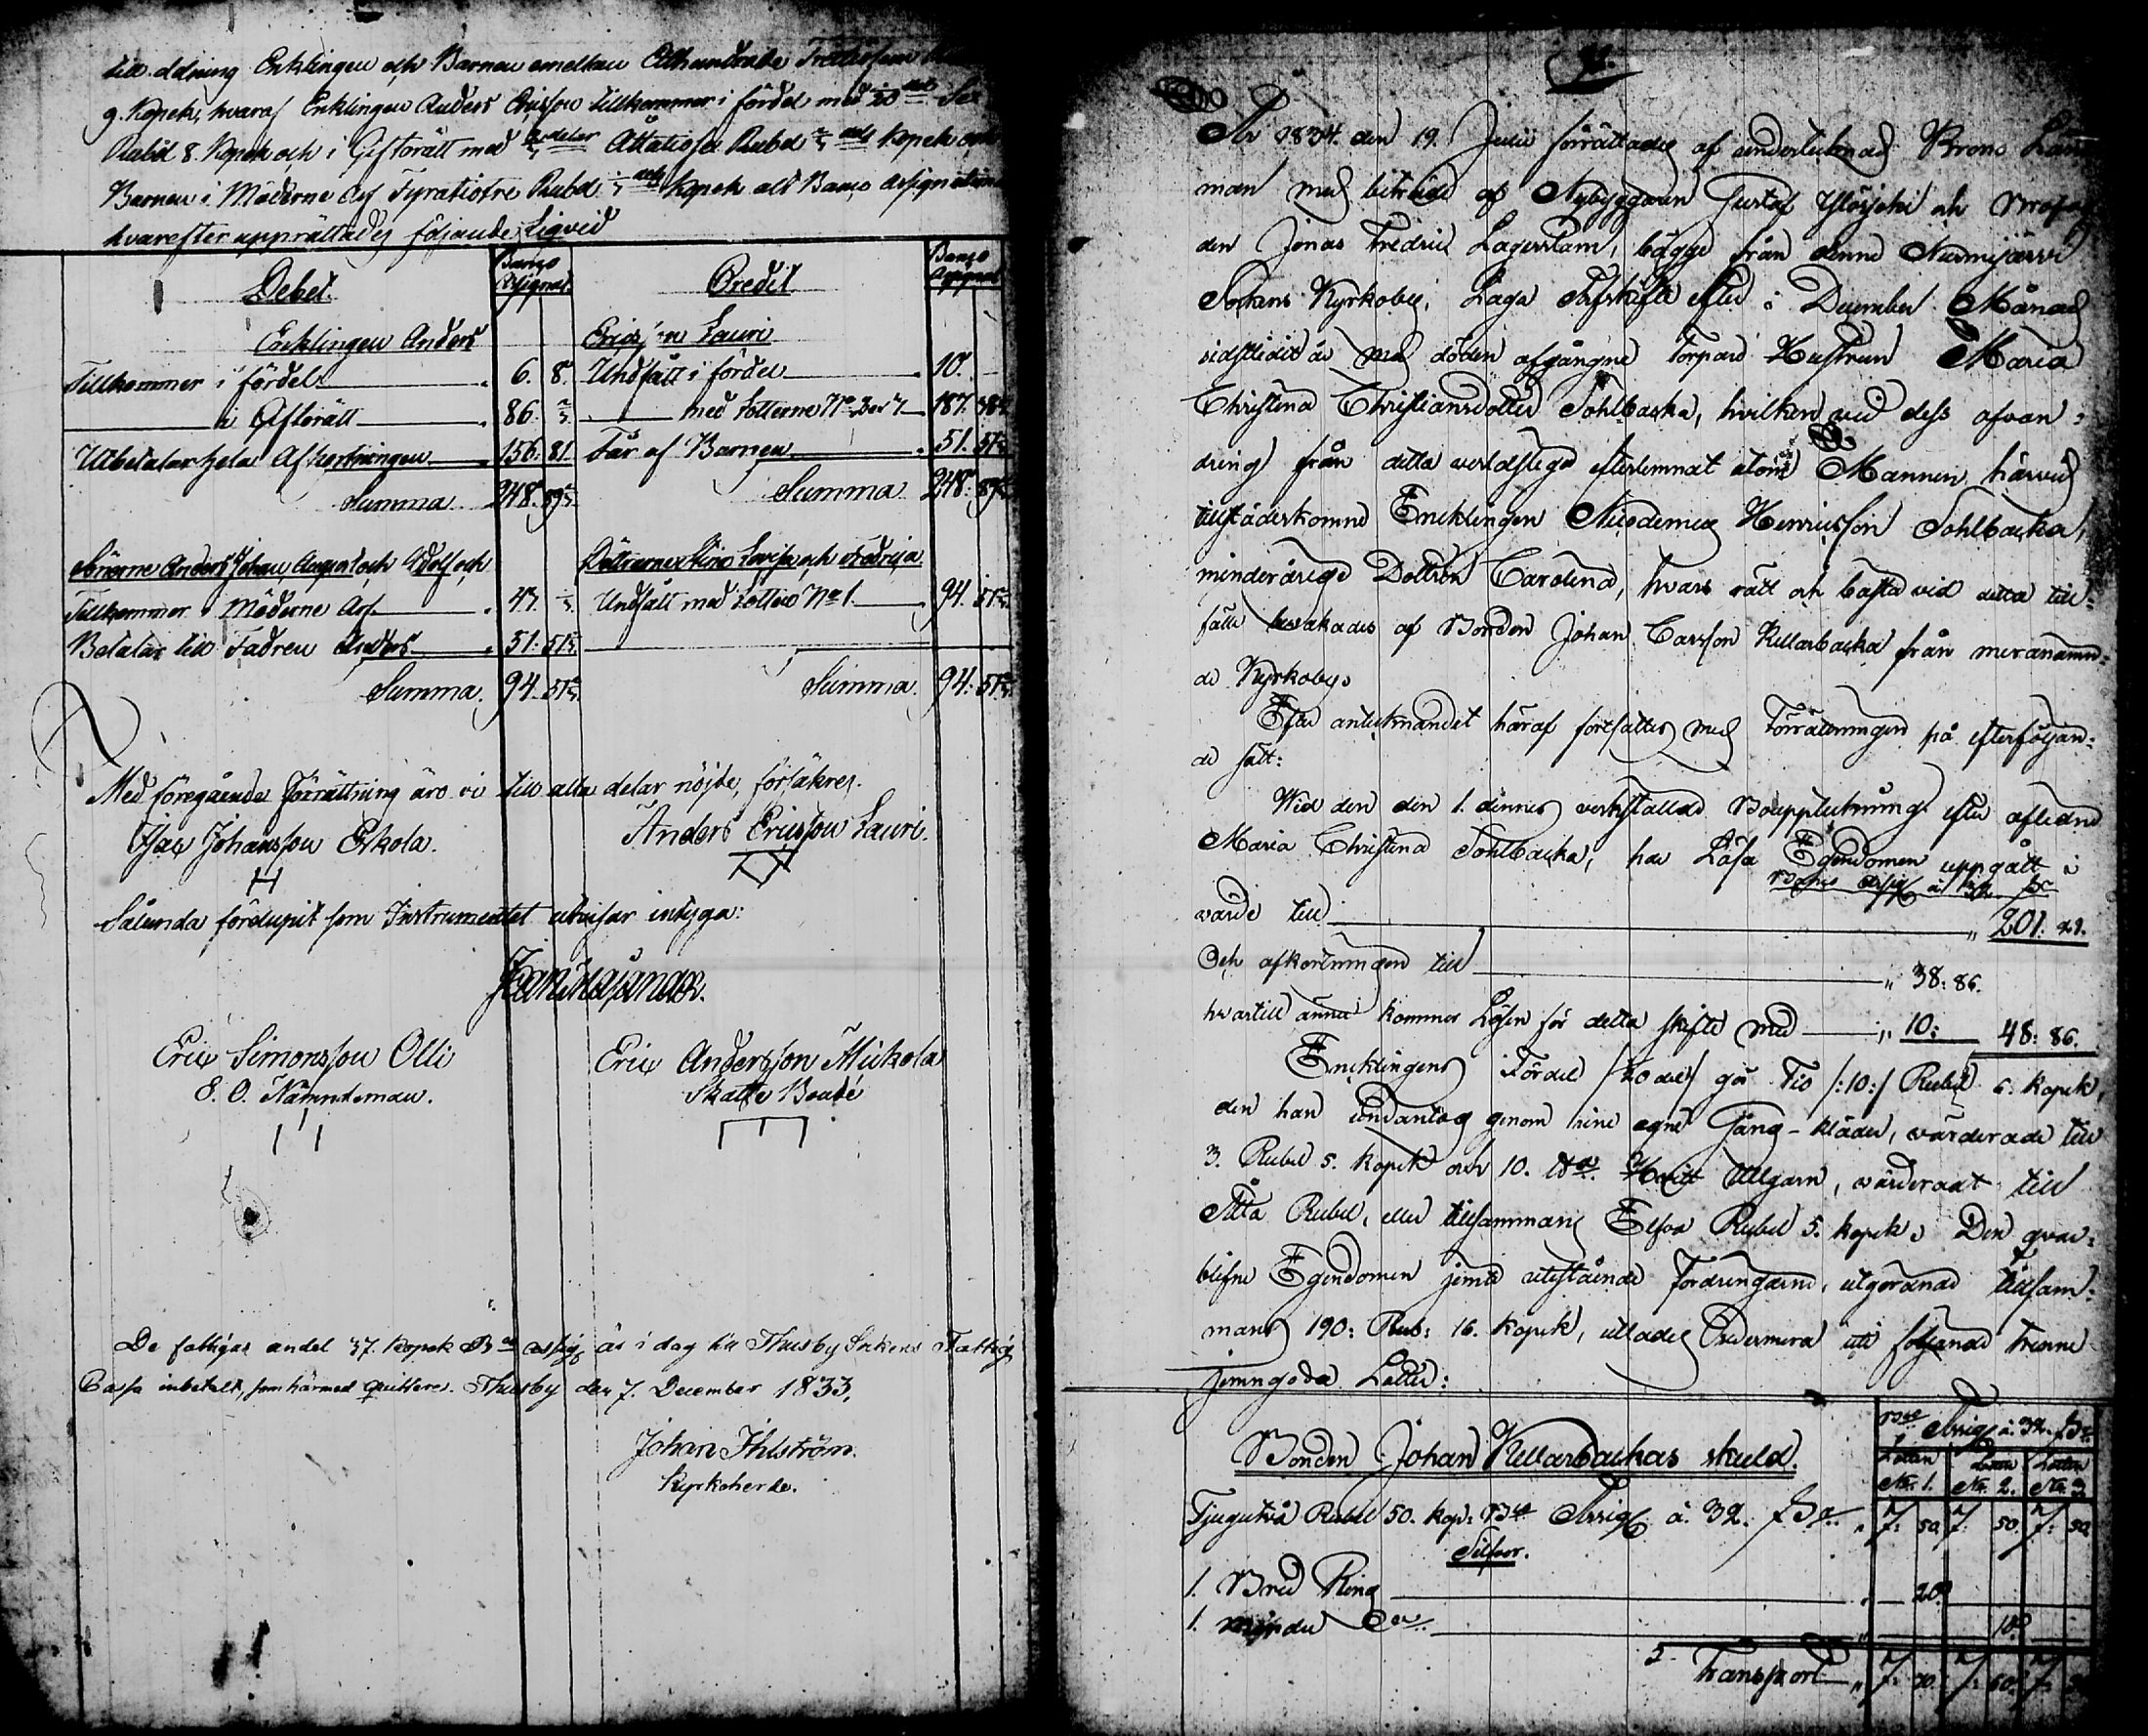 till ddning Enklingen och Barnen emellan Etthundrade Trettiofem
9. Kopek, hvaraf Enklingen Anders Ericsson tillkommer i fördel med 1/20 del Sex
Rubel 8. Kopek och i Giftorätt med 2/3 delar Åttatiosex Rubel 2/3 dels Kopek och
Barnen i Möderne Arf Fyratiotre Rubel 1/3 dels Kopek allt Banco Assignationer
hvarefter upprättades följande Liqvid
Debet.
Banco Assignat.
Credit
Banco Assignat
Enklingen Anders
Ericsson Lauri
Tillkommer i fördel 6. 8.
Undfått i fördel 10. –
i Giftorätt 86. 2/3
med Lotterne No 2 och 3 187. 38
Utbetalar hela Afkortningen 156. 81
Får af Barnen 51. 51
Summa 248. 89
Summa 248. 89
Sönerne Anders Johan, August och Adolf och
Döttrarne Stina Lovisa och Fredrica
Tillkommer i Möderne Arf 43. 1/3
Undfått med Lotten No 1. 94. 51
Betalar till Fadren Anders 51: 51
Summa. 94. 51
Summa. 94. 51
Med föregående förrättning äro vi till alla delar nöjde, försäkres.
Isac Johansson Eskola.
Anders Ericsson Lauri.
Sålunda förelupit som Instrumentet utvisar intyga:
Eric Simonsson Olli
Eric Andersson Mickola
E. O. Nämndeman.
Skatte Bonde
De fattigas andel 37. kopek Bco assig. är i dag till Thusby Sockens Fattig
Cassa inbetalt, som härmed quitteres. Thusby den 7. December 1833.
Johan Ihlström.
Kyrkoherde.
År 1834. den 19. Julii förrättades af undertecknad Krono Läns
man med biträde af Nybyggaren Gustaf Ylösjoki och
den Jonas Fredric Lagerstam, bägge från denne Nurmijärvi
Sockens Kyrkoby, Laga Arfskifte efter i December Månad
sidstledit år med döden afgångne Torpare Hustrun Maria
Christina Christiansdotter Sohlbacka, hvilken vid dess afvan-
dring från detta verldsliga efterlemnat utom Mannen härvid
tillstädeskomne Encklingen Nicodemus Henricsson Sohlbacka,
minderåriga Dottren Carolina, hvars rätt och bästa vid detta till-
fälle bevakades af Bonden Johan Carlsson Kellarbacka från meranämn-
de Kyrkoby.
Efter antecknandet häraf fortsattes med Förrättningen på efterföljan-
de sätt:
Wid den den 1. dennes verkställde Bouppteckning efter aflidne
Maria Christina Sohlbacka, har Lösa Egendomen uppgått i
Banco Assig. à 32 Rr
värde till „ 201. 21.
Och afkortningen till „ 38: 86.
hvartill ännu kommer Lösen för detta skifte med „ 10: 48: 86.
Encklingens Fördel /20 del/ gör Tio /:10:/ Rubel 6. kopek,
den han undantog genom sine egne Gång-kläder, värderade till
3. Rubel 5. kopek och 10. Hvitt Ullgarn, värderadt till
Åtta Rubel, eller tillsammans Elfva Rubel 5. kopek. Den qvar-
blifne Egendomen jemte utestående Fordringarne, utgörande tillsam-
mans 190: Rub: 16. kopek, utlades Ordermera uti följande trenne
jemngoda Lotter:
Bco Assig. à. 32. Rr.
Bonden Johan Kellarbackas skuld.
Lotten No. 1.
Lotten No. 2.
Lotten No. 3.
Tjugutvå Rubel 50. kop: Bco Assig. à. 32. Rr. „ 7: 50. 7: 50. 7: 50.
Silfver.
1. Bred Ring „ 20.
1. mindre Do. „ 10.
Transport „ 7: 70. 7: 60. 7: 50